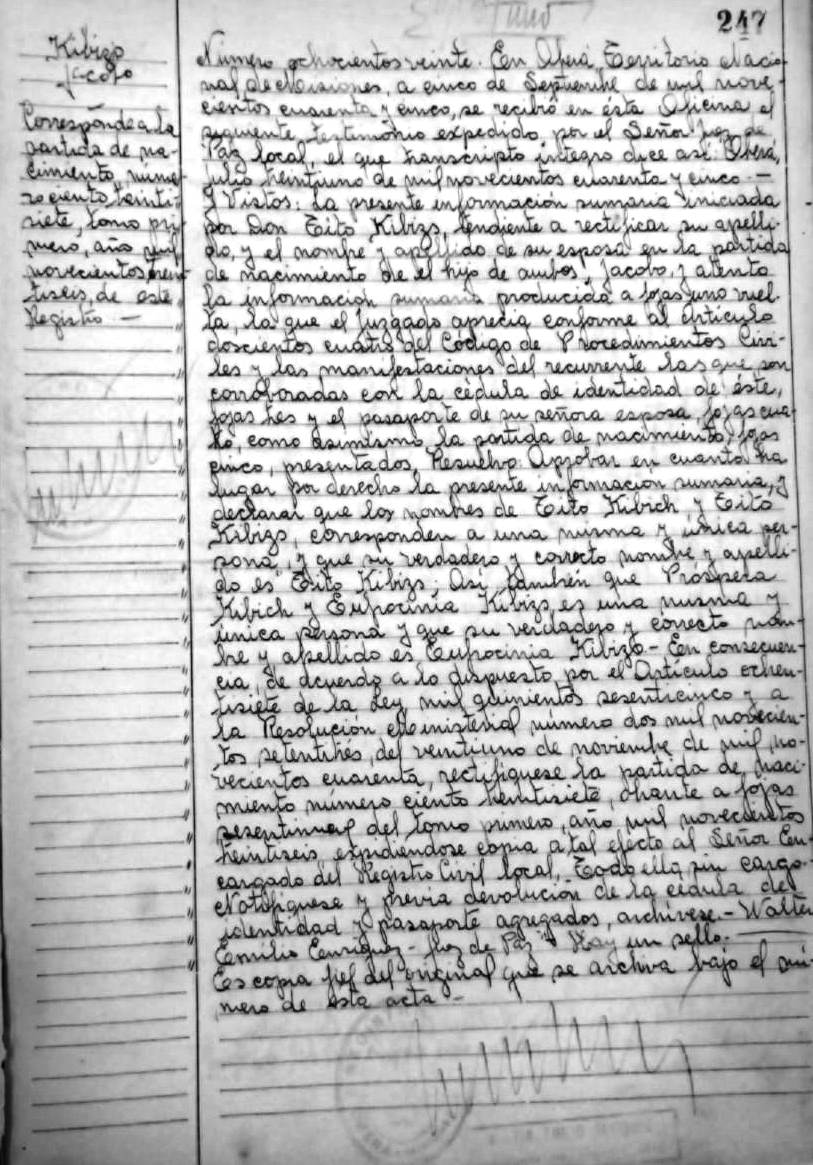 247
Kibizs
Jacobo
Corresponde a la
partida de na-
cimiento, núme-
ro ciento treinti-
siete, tomo pri-
mero, año mil
novecientos trein-
tiseis, de este
Registro —
Número ochocientos veinte. En Oberá, Territorio Nacio-
nal de Misiones, a cinco de Septiembre de mil nove-
cientos cuarenta y cinco, se recibió en ésta Oficina el
siguiente testimonio expedido por el Señor Juez de
Paz local, el que transcripto íntegro dice así: Oberá,
Julio veintiuno de mil novecientos cuarenta y cinco. —
Y Vistos: La presente información sumaria iniciada
por Don Tito Kibizs, tendiente a rectificar su apelli-
do, y el nombre y apellido de su esposa en la partida
de nacimiento de el hijo de ambos, Jacobo, y atento
la información sumaria producida a fojas uno vuel-
ta, la que el Juzgado aprecia conforme al artículo
doscientos cuatro del Código de Procedimientos Civi-
les y las manifestaciones del recurrente las que son
corroboradas con la cédula de identidad de éste,
fojas tres y el pasaporte de su señora esposa, fojas cua-
tro, como asimismo la partida de nacimiento, fojas
cinco, presentados, Resuelvo: Aprobar en cuanto ha
lugar por derecho la presente información sumaria, y
declarar que los nombres de Tito Kibich y Tito
Kibizs, corresponden a una misma y única per-
sona, y que su verdadero y correcto nombre y apelli-
do es Tito Kibizs; Así también que Próspera
Kibich y Eufrocinia Kibizs es una misma y
única persona y que su verdadero y correcto nom-
bre y apellido es Eufrocinia Kibizs. - En consecuen-
cia, de acuerdo a lo dispuesto por el Artículo ochen-
tisiete de la Ley mil quinientos sesenticinco y a
la Resolución Ministerial número dos mil novecien-
tos setentitrés, del veintiuno de noviembre de mil no-
vecientos cuarenta, rectifíquese la partida de naci-
miento número ciento treintisiete, obrante a fojas
sesentinueve del tomo primero, año mil novecientos
treintiseis, expidiendose copia a tal efecto al Señor En-
cargado del Registro Civil local, Todo ello sin cargo.
Notifíquese y previa devolución de la cédula de
identidad y pasaporte agregados, archívese. - Walter
Emilio Enriquez - Juez de Paz" Hay un sello. —
Es copia fiel del original que se archiva bajo el nú-
mero de esta acta —